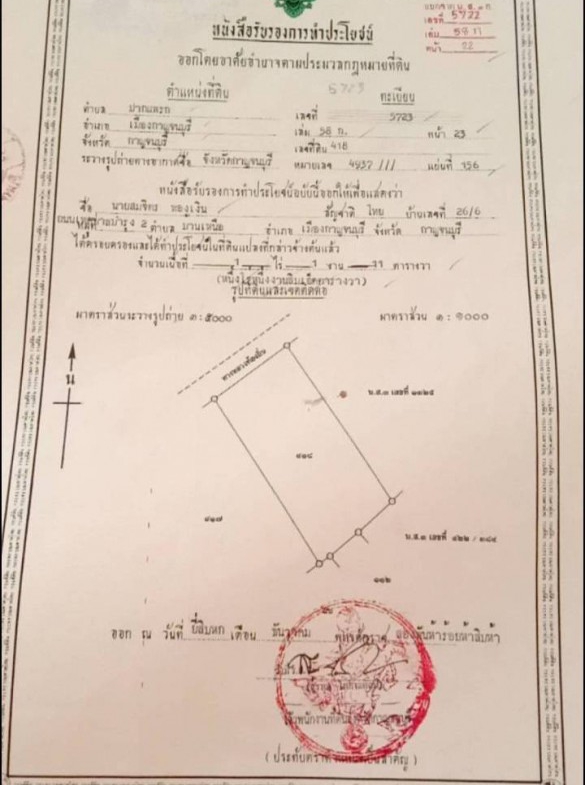 น.ส.๓ ก.
เลขที่ 5722
เล่ม 58 ก
หน้า 22
หนังสือรับรองการทำประโยชน์
ออกโดยอาศัยอำนาจตามประมวลกฎหมายที่ดิน
ตำแหน่งที่ดิน
5723
ทะเบียน
ตำบล ปากแพรก
เลขที่ 5723
อำเภอ เมืองกาญจนบุรี
เล่ม 58 ก. หน้า 23
จังหวัด กาญจนบุรี
เลขที่ดิน 418
ระวางรูปถ่ายทางอากาศชื่อ จังหวัดกาญจนบุรี หมายเลข 4937 /// แผ่นที่ 156
หนังสือรับรองการทำประโยชน์ฉบับนี้ออกให้เพื่อแสดงว่า
ชื่อ นายสมจิตร ทองเงิน สัญชาติ ไทย บ้านเลขที่ 26/6
2 ตำบล บ้านเหนือ อำเภอ เมืองกาญจนบุรี จังหวัด กาญจนบุรี
ได้ครอบครองและได้ทำประโยชน์ในที่ดินแปลงที่กล่าวข้างต้นแล้ว
จำนวนเนื้อที่ 1 ไร่ 1 งาน ตารางวา
รูปที่ดินและเขตติดต่อ
มาตราส่วนระวางรูปถ่าย ๑ : ๕๐๐๐
มาตราส่วน ๑ : ๑๐๐๐
น
น.ส.๓ เลขที่ ๑๑๒๕
๔๑๘
๔๑๗
น.ส.๓ เลขที่ ๔๒๒ / ๓๘๔
๑๑๒
ออก ณ วันที่ ยี่สิบหก เดือน ธันวาคม พุทธศักราช สองพันห้าร้อยห้าสิบห้า
(ประทับตราตำแหน่งเป็นสำคัญ)